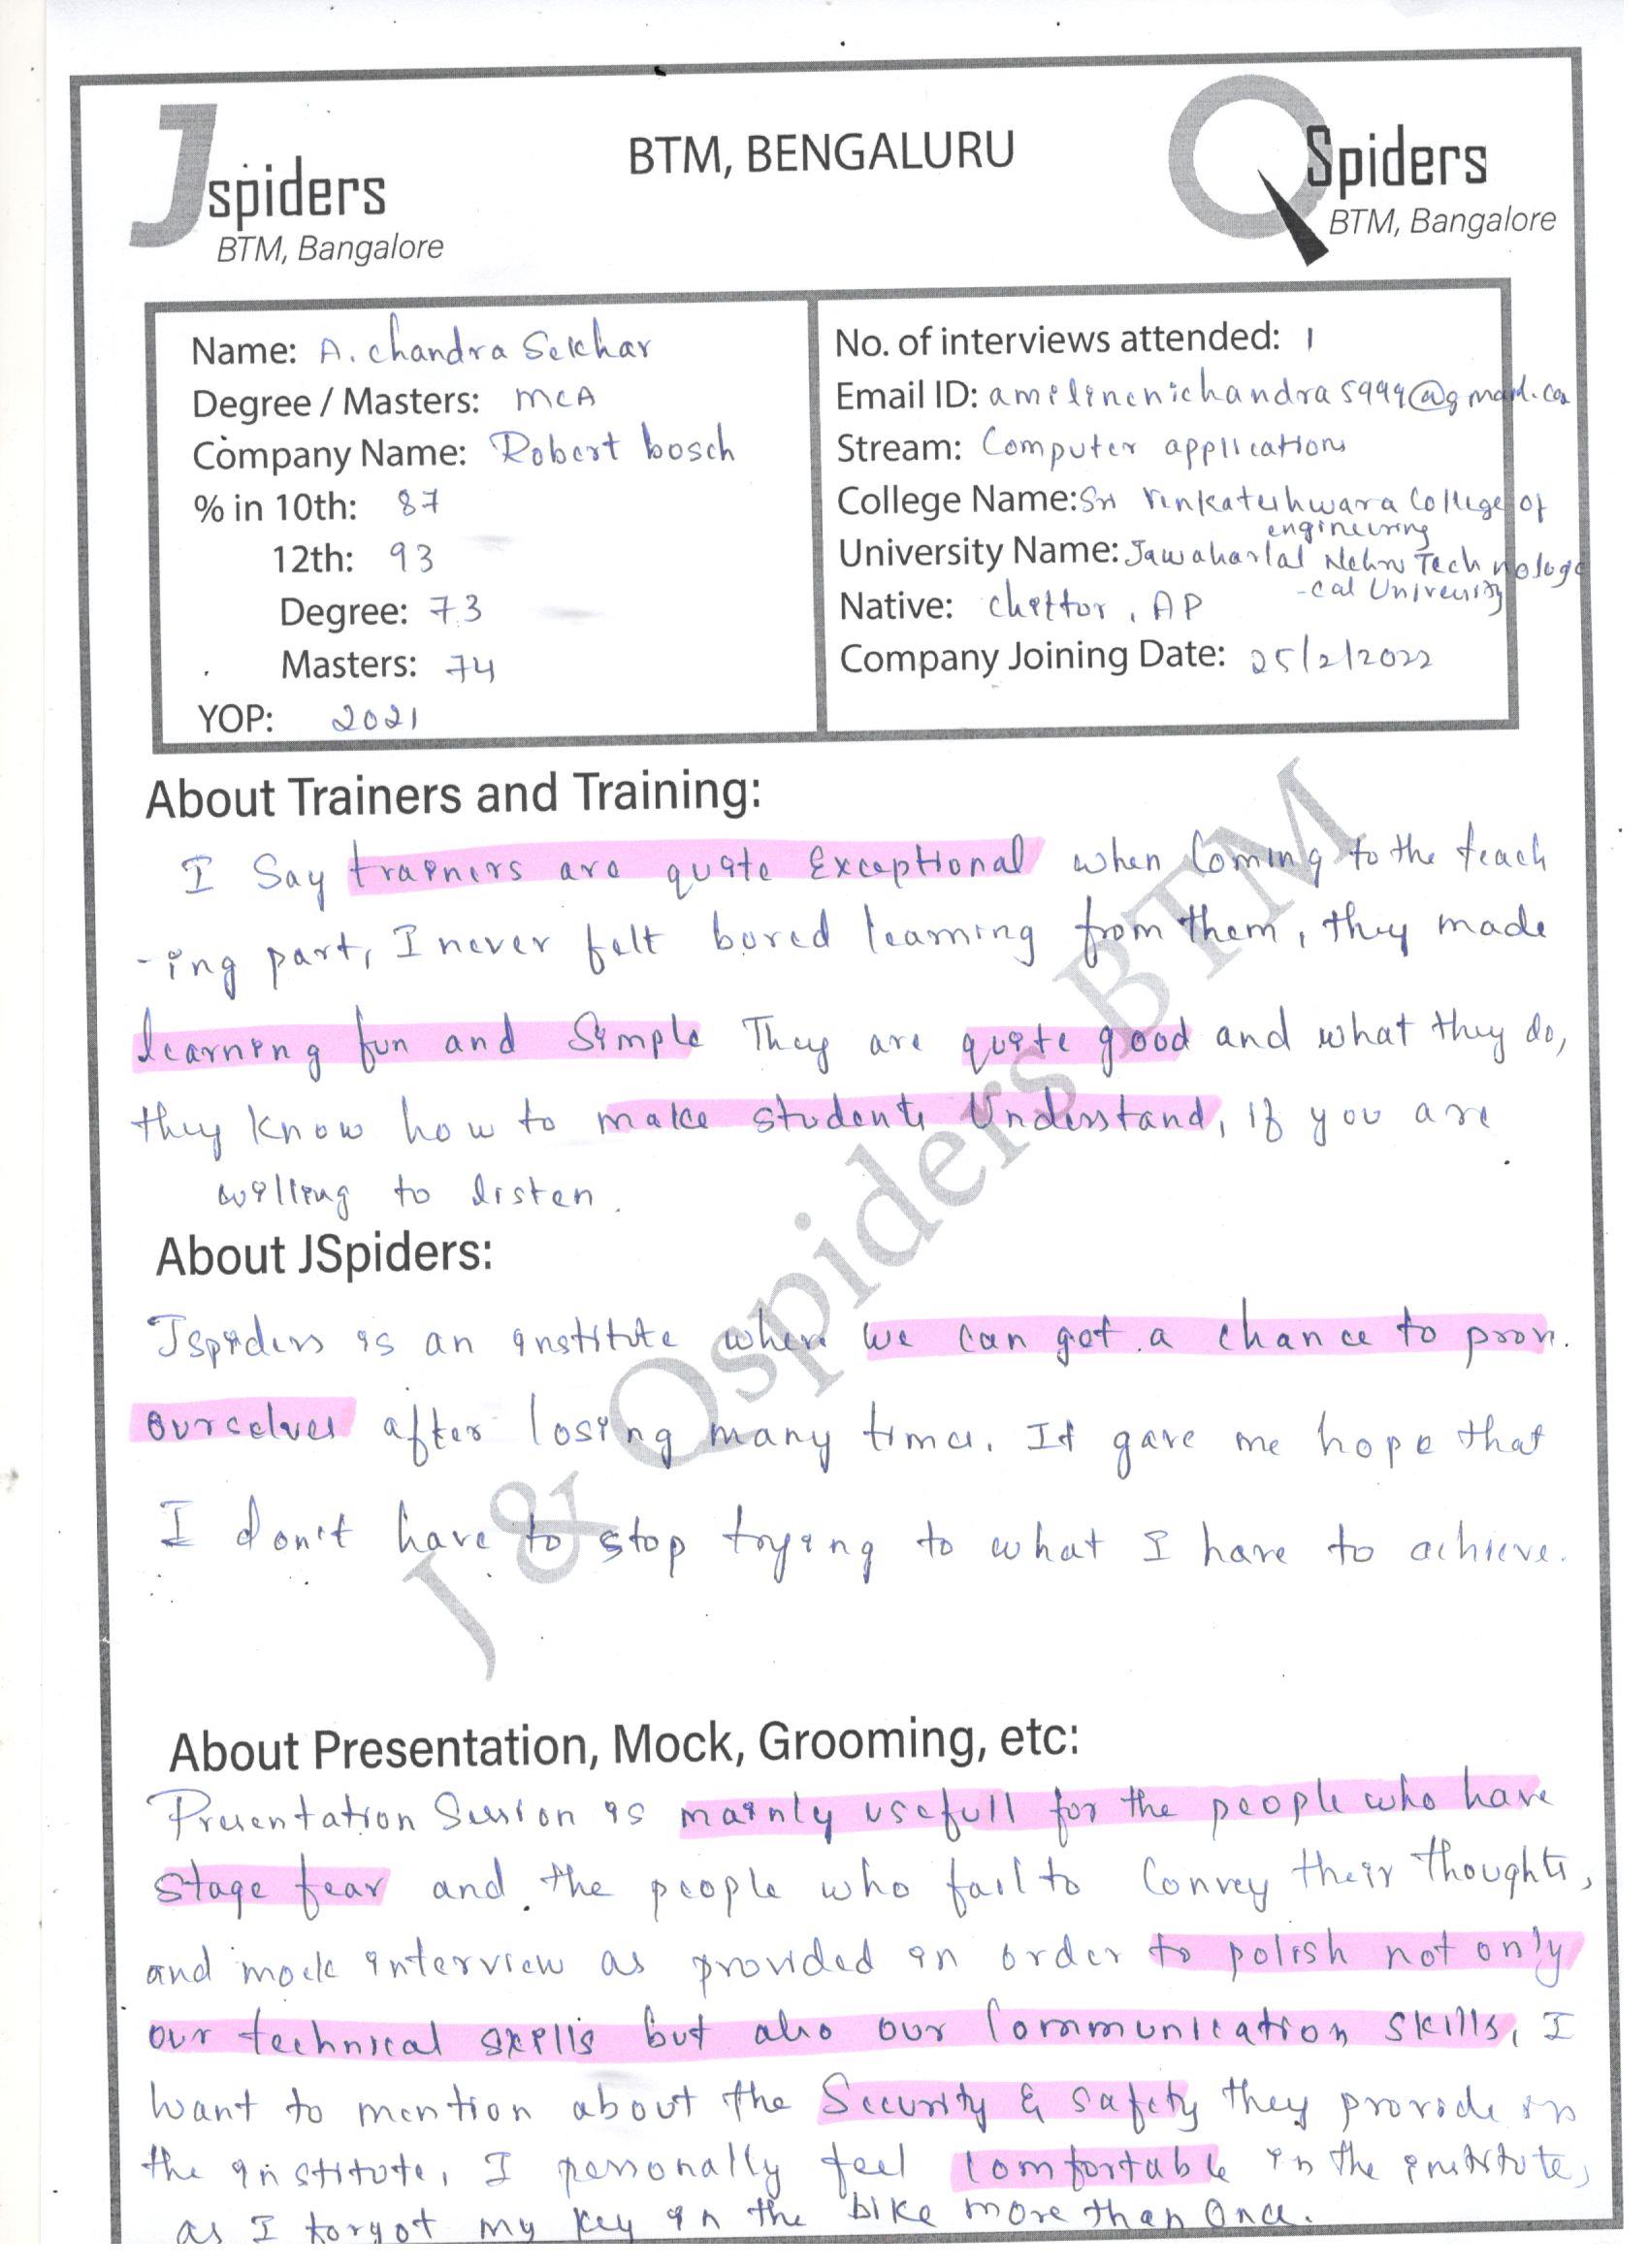 Jspiders
BTM, Bangalore
BTM, BENGALURU
QSpiders
BTM, Bangalore
Name: A. chandra Sekhar
Degree / Masters: MCA
Company Name: Robert bosch
% in 10th: 87
12th: 93
Degree: 73
Masters: 74
YOP: 2021
No. of interviews attended: 1
Email ID:
Stream: Computer applications
College Name: Sri Venkateshwara College of
engineering
University Name: Jawaharlal Nehru Technologi
-cal University
Native: Chittor, AP
Company Joining Date: 25/2/2022
About Trainers and Training:
I Say trainers are quite Exceptional when Coming to the teach
-ing part, I never felt bored learning from them, they made
learning fun and Simple They are quite good and what they do,
they know how to make students Understand, if you are
willing to listen.
About JSpiders:
Jspiders is an institute where we can get a chance to prove
ourselves after losing many times. It gave me hope that
I don't have to stop trying to what I have to achieve.
About Presentation, Mock, Grooming, etc:
Presentation Session is mainly usefull for the people who have
stage fear and the people who fail to Convey their thoughts,
and mock interview as provided in order to polish not only
our technical skills but also our Communication skills, I
want to mention about the Security & safety they provide in
the institute, I personally feel Comfortable in the institute,
as I forgot my key in the bike more than Once.
J & Qspiders BTM